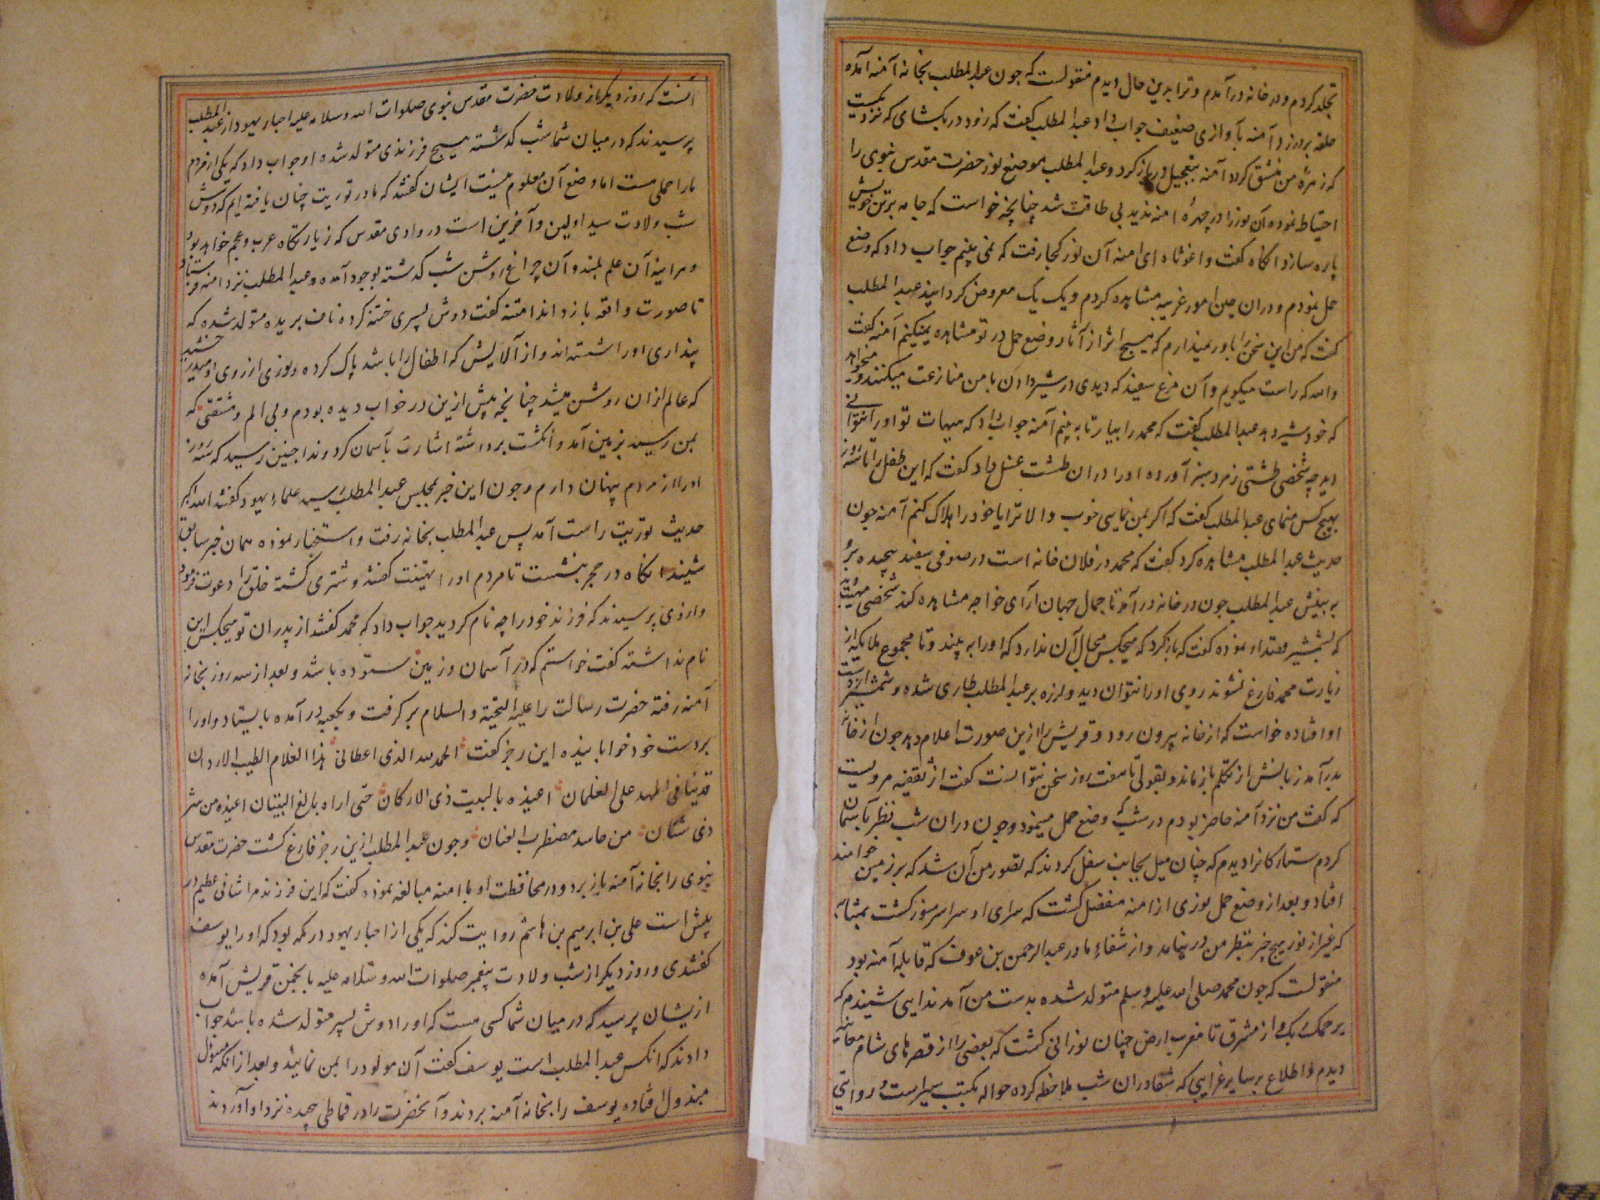 تجلد کردم و در خانه در آمدم و ترا بدین حال دیدم منقولست که چون عبدالمطلب بخانه آمنه آمده
حلقه بر در زد آمنه بآوازی ضعیف جواب داد عبدالمطلب گفت که زود در بگشای که نزدیکست
که زهرهٔ من منشق گردد آمنه بتعجیل در باز کرد و عبدالمطلب موضع نور حضرت مقدس نبوی را
احتیاط نموده آن نور را در چهرهٔ آمنه ندید بی طاقت شد چنانچه خواست که جامه برتن خویش
پاره سازد آنگاه گفت واغوثاه ای آمنه آن نور کجا رفت که نمی بینم جواب داد که وضع
حمل نمودم و در آن حین امور غریبه مشاهده کردم و یک یک معروض گردانید عبدالمطلب
گفت که من این سخن را باور نمیدارم که هیچ اثر از آثار وضع حمل در تو مشاهده نمیکنم آمنه گفت
والله که راست میگویم و آن مرغ سفید که دیدی در شیر دادن با من منازعت میکند و میخواهد
که خود شیر دهد عبدالمطلب گفت که محمد را بیار تا به بینم آمنه جواب داد که هیهات تو او را نتوانی
دید چه شخصی طشتی زمرد سبز آورده او را در آن طشت غسل داد گفت که این طفل را تا سه روز
بهیچ کس منمای عبدالمطلب گفت که اگر بمن نمایی خوب والا ترا یا خود را هلاک کنم آمنه چون
حدیث عبدالمطلب مشاهده کرد گفت که محمد در فلان خانه است در صوفی سفید پیچیده برو
به بینش عبدالمطلب چون در خانه در آمد تا جمال جهان آرای خواجه مشاهده کند شخصی مهیب
که بشمشیر قصد او نموده گفت که بازگرد که هیچکس مجال آن ندارد که او را به بیند و تا مجموع ملایکه از
زیارت محمد فارغ نشوند روی او را نتوان دید و لرزه بر عبدالمطلب طاری شده و شمشیر از دست
او افتاده خواست که از خانه بیرون رود و قریش را ازین صورت اعلام دهد چون از خانه
بدر آمد زبانش از تکلم باز ماند و بقولی تا هفت روز سخن نتوانست گفت از ثقفیه مرویست
که گفت من نزد آمنه حاضر بودم در شبی که وضع حمل مینمود و چون در آن شب نظر بآسمان
کردم ستارگانرا دیدم که چنان میل بجانب سفل کردند که تصور من آن شد که بر زمین خواهند
افتاد و بعد از وضع حمل نوری از آمنه منفصل گشت که سرای او سراسر منور گشت بمثابه
که غیر از نور هیچ چیز بنظر من در نیامد و از شفاء مادر عبدالرحمن بن عوف که قابلهٔ آمنه بود
منقولست که چون محمد صلی الله علیه وسلم متولد شده بدست من آمد ندایی شنیدم که
یرحمک ربک و از مشرق تا مغرب ارض چنان نورانی گشت که بعضی را از قصرهای شام
دیدم و اطلاع بر سایر غرایبی که شفا در آن شب ملاحظه کرده حواله بکتب سیر است و روایتی
آنست که روز دیگر از ولادت حضرت مقدس نبوی صلوات الله وسلامه علیه احبار یهود از عبدالمطلب
پرسیدند که در میان شما شب گذشته هیچ فرزندی متولد شده او جواب داد که یکی از مردم
ما را حملی هست اما وضع آن معلوم نیست ایشان گفتند که ما در توریت چنان یافته ایم که دوش
شب ولادت سید اولین و آخرین است در وادی مقدس که زیارتگاه عرب و عجم خواهد بود
و هر آینه آن علم بلند و آن چراغ روشن شب گذشته بوجود آمده و عبدالمطلب نزد آمنه فرستاد
تا صورت واقعه باز داند آمنه گفت دوش پسری ختنه کرده ناف بریده متولد شده که
پنداری او را شسته اند و از آلایش که اطفال را باشد پاک کرده و نوری از روی او میدرخشید
که عالم از آن روشن میشد چنانچه پیش ازین در خواب دیده بودم و بی الم و مشقتی که
بمن رسید بزمین آمد و انگشت برداشته اشارت بآسمان کرد و ندا چنین رسید که سه روز
او را از مردم پنهان دارم و چون این خبر بمجلس عبدالمطلب رسید علماء یهود گفتند الله اکبر
حدیث توریت راست آمد پس عبدالمطلب بخانه رفت و استخبار نموده همان خبر سابق
شنید آنگاه در حجر بنشست تا مردم او را تهنیت گفتند و شتری کشته خلق را دعوت فرمود
و از وی پرسیدند که فرزند خود را چه نام کردید جواب داد که محمد گفتند از پدران تو هیچکس این
نام نداشته گفت خواستم که در آسمان و زمین ستوده باشد و بعد از سه روز بخانه
آمنه رفته حضرت رسالت را علیه التحیة والسلام بر گرفت و بکعبه در آمده بایستاد و او را
بر دست خود خوابانیده این رجز گفت الحمد لله الذی اعطانی هذا الغلام الطیب الاردان
قد ساد فی المهد علی الغلمان اعیذه بالبیت ذی الارکان حتی اراه بالغ البنیان اعیذه من شر
ذی شنآن من حاسد مضطرب العنان و چون عبدالمطلب ازین رجز فارغ گشت حضرت مقدس
نبوی را بخانه آمنه باز برد و در محافظت او با آمنه مبالغه نموده گفت که این فرزند مرا شانی عظیم در
پیش است علی بن ابرهیم بن هاشم روایت کند که یکی از احبار یهود در مکه بود که او را یوسف
گفتندی و روز دیگر از شب ولادت پیغمبر صلوات الله وسلامه علیه با انجمن قریش آمده
ازیشان پرسید که در میان شما کسی هست که او را دوش پسر متولد شده باشد جواب
دادند که آنکس عبدالمطلب است یوسف گفت آن مولود را بمن نمایید و بعد از آنکه مسئول
مبذول افتاده یوسف را بخانه آمنه بردند و آنحضرت را در قماطی پیچیده نزد او آوردند